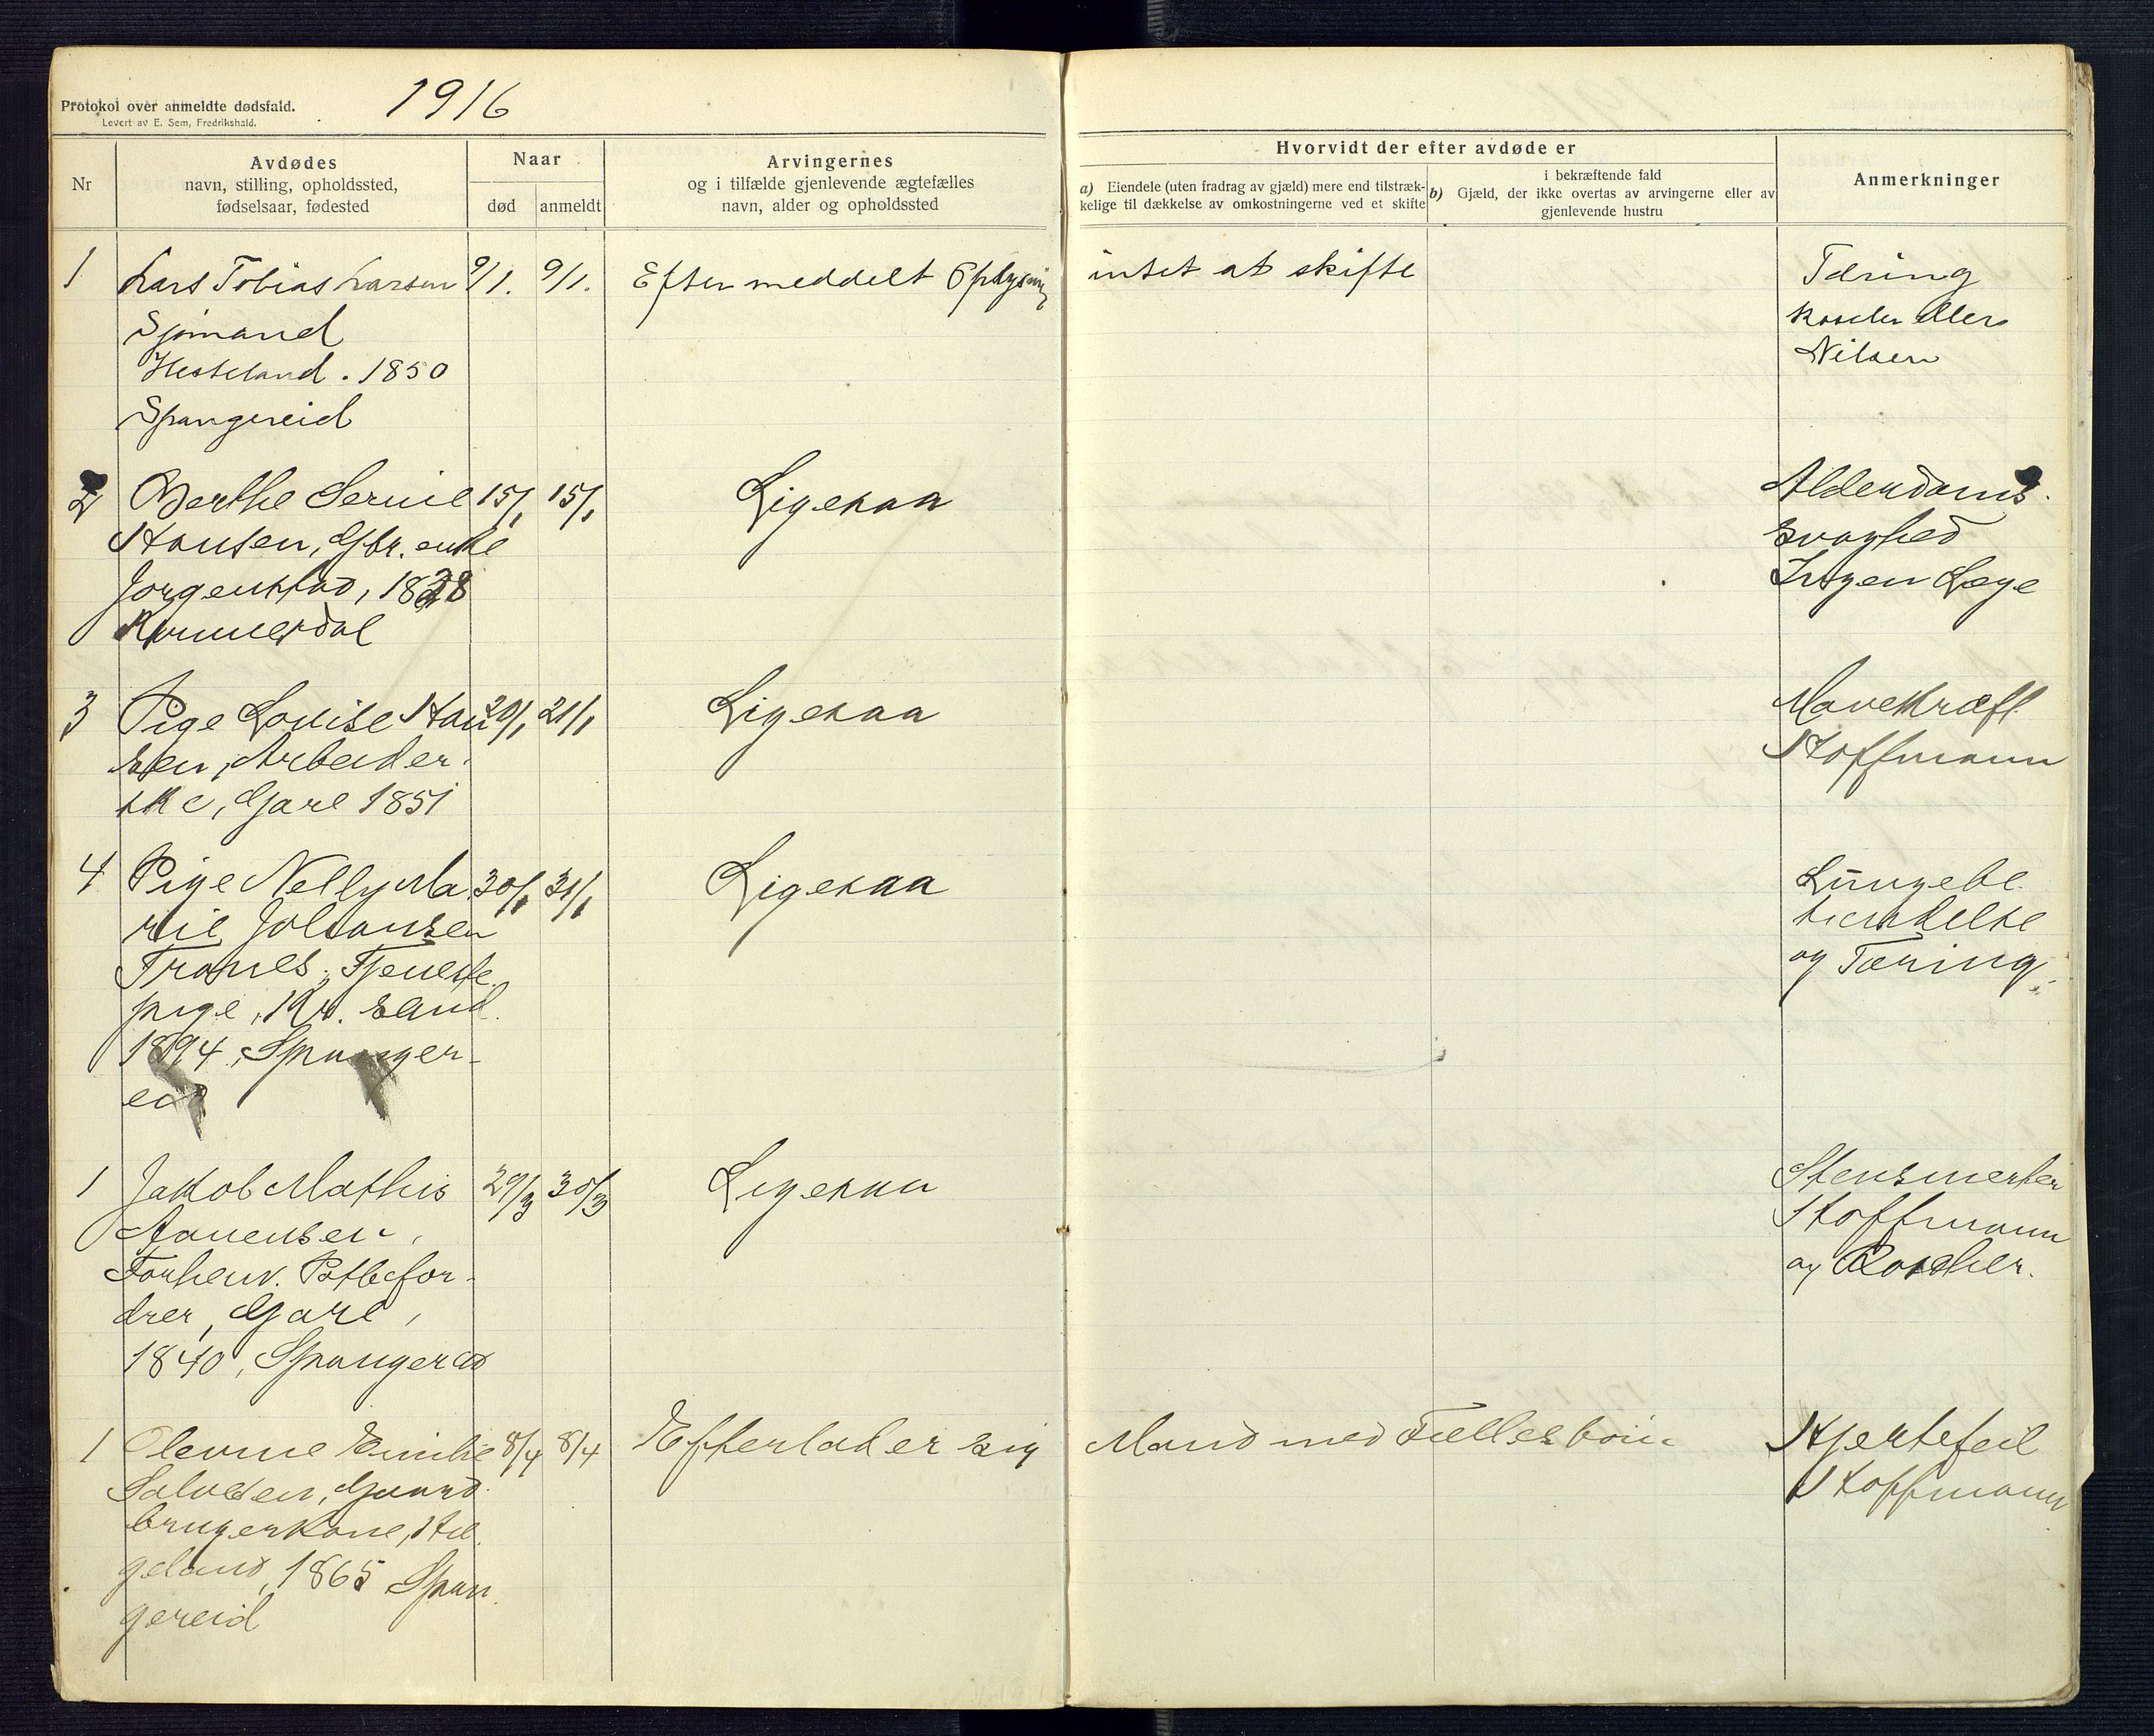 Protokol over anmeldte dødsfald.
Levert av E. Sem, Fredrikshald.
1916
Nr
Avdødes
navn, stilling, opholdssted,
fødselsaar, fødested
Naar
død
anmeldt
Arvingernes
og i tilfælde gjenlevende ægtefælles
navn, alder og opholdssted
Hvorvidt der efter avdøde er
a) Eiendele (uten fradrag av gjæld) mere end tilstræk-
kelige til dækkelse av omkostningerne ved et skifte
i bekræftende fald
b) Gjæld, der ikke overtas av arvingerne eller av
gjenlevende hustru
Anmerkninger
1 Lars Tobias Larsen 9/1. 9/1. Efter meddelt Oplysning intet at skifte Tæring
Sjömand
Nilsen
Hesteland. 1850
Spangereid
2 Berthe Serine 15/1 15/1 Ligesaa Alderdoms
Hansen, Gbr. enke svaghed
Jørgenstad, 1828 Ingen Læge
3 Pige Louise Han 20/1 21/1 Ligesaa Mavekræft
sen, Arbeider. Hoffmann
ske, Gare 1851
4 Pige Nelly Ma 30/1 31/1 Ligesaa Lungebe
rie Johansen tændelse
Tranes, Tjeneste og Tæring
pige, Kr. sand.
1894, Spanger-
eid
1 Jakob Mathis 29/3 30/3 Ligesaa Stensmerter
Aanensen, Hoffmann
Forhenv. Postbefor- og Roscher.
drer, Gare,
1840, Spangereid
1 Olevine Emilie 8/4 8/4 Efterlader sig Mand med Fællesboie Hjertefeil
Salvesen, Gaard Hoffmann
brugerkone, Hel
geland, 1865 Span
gereid